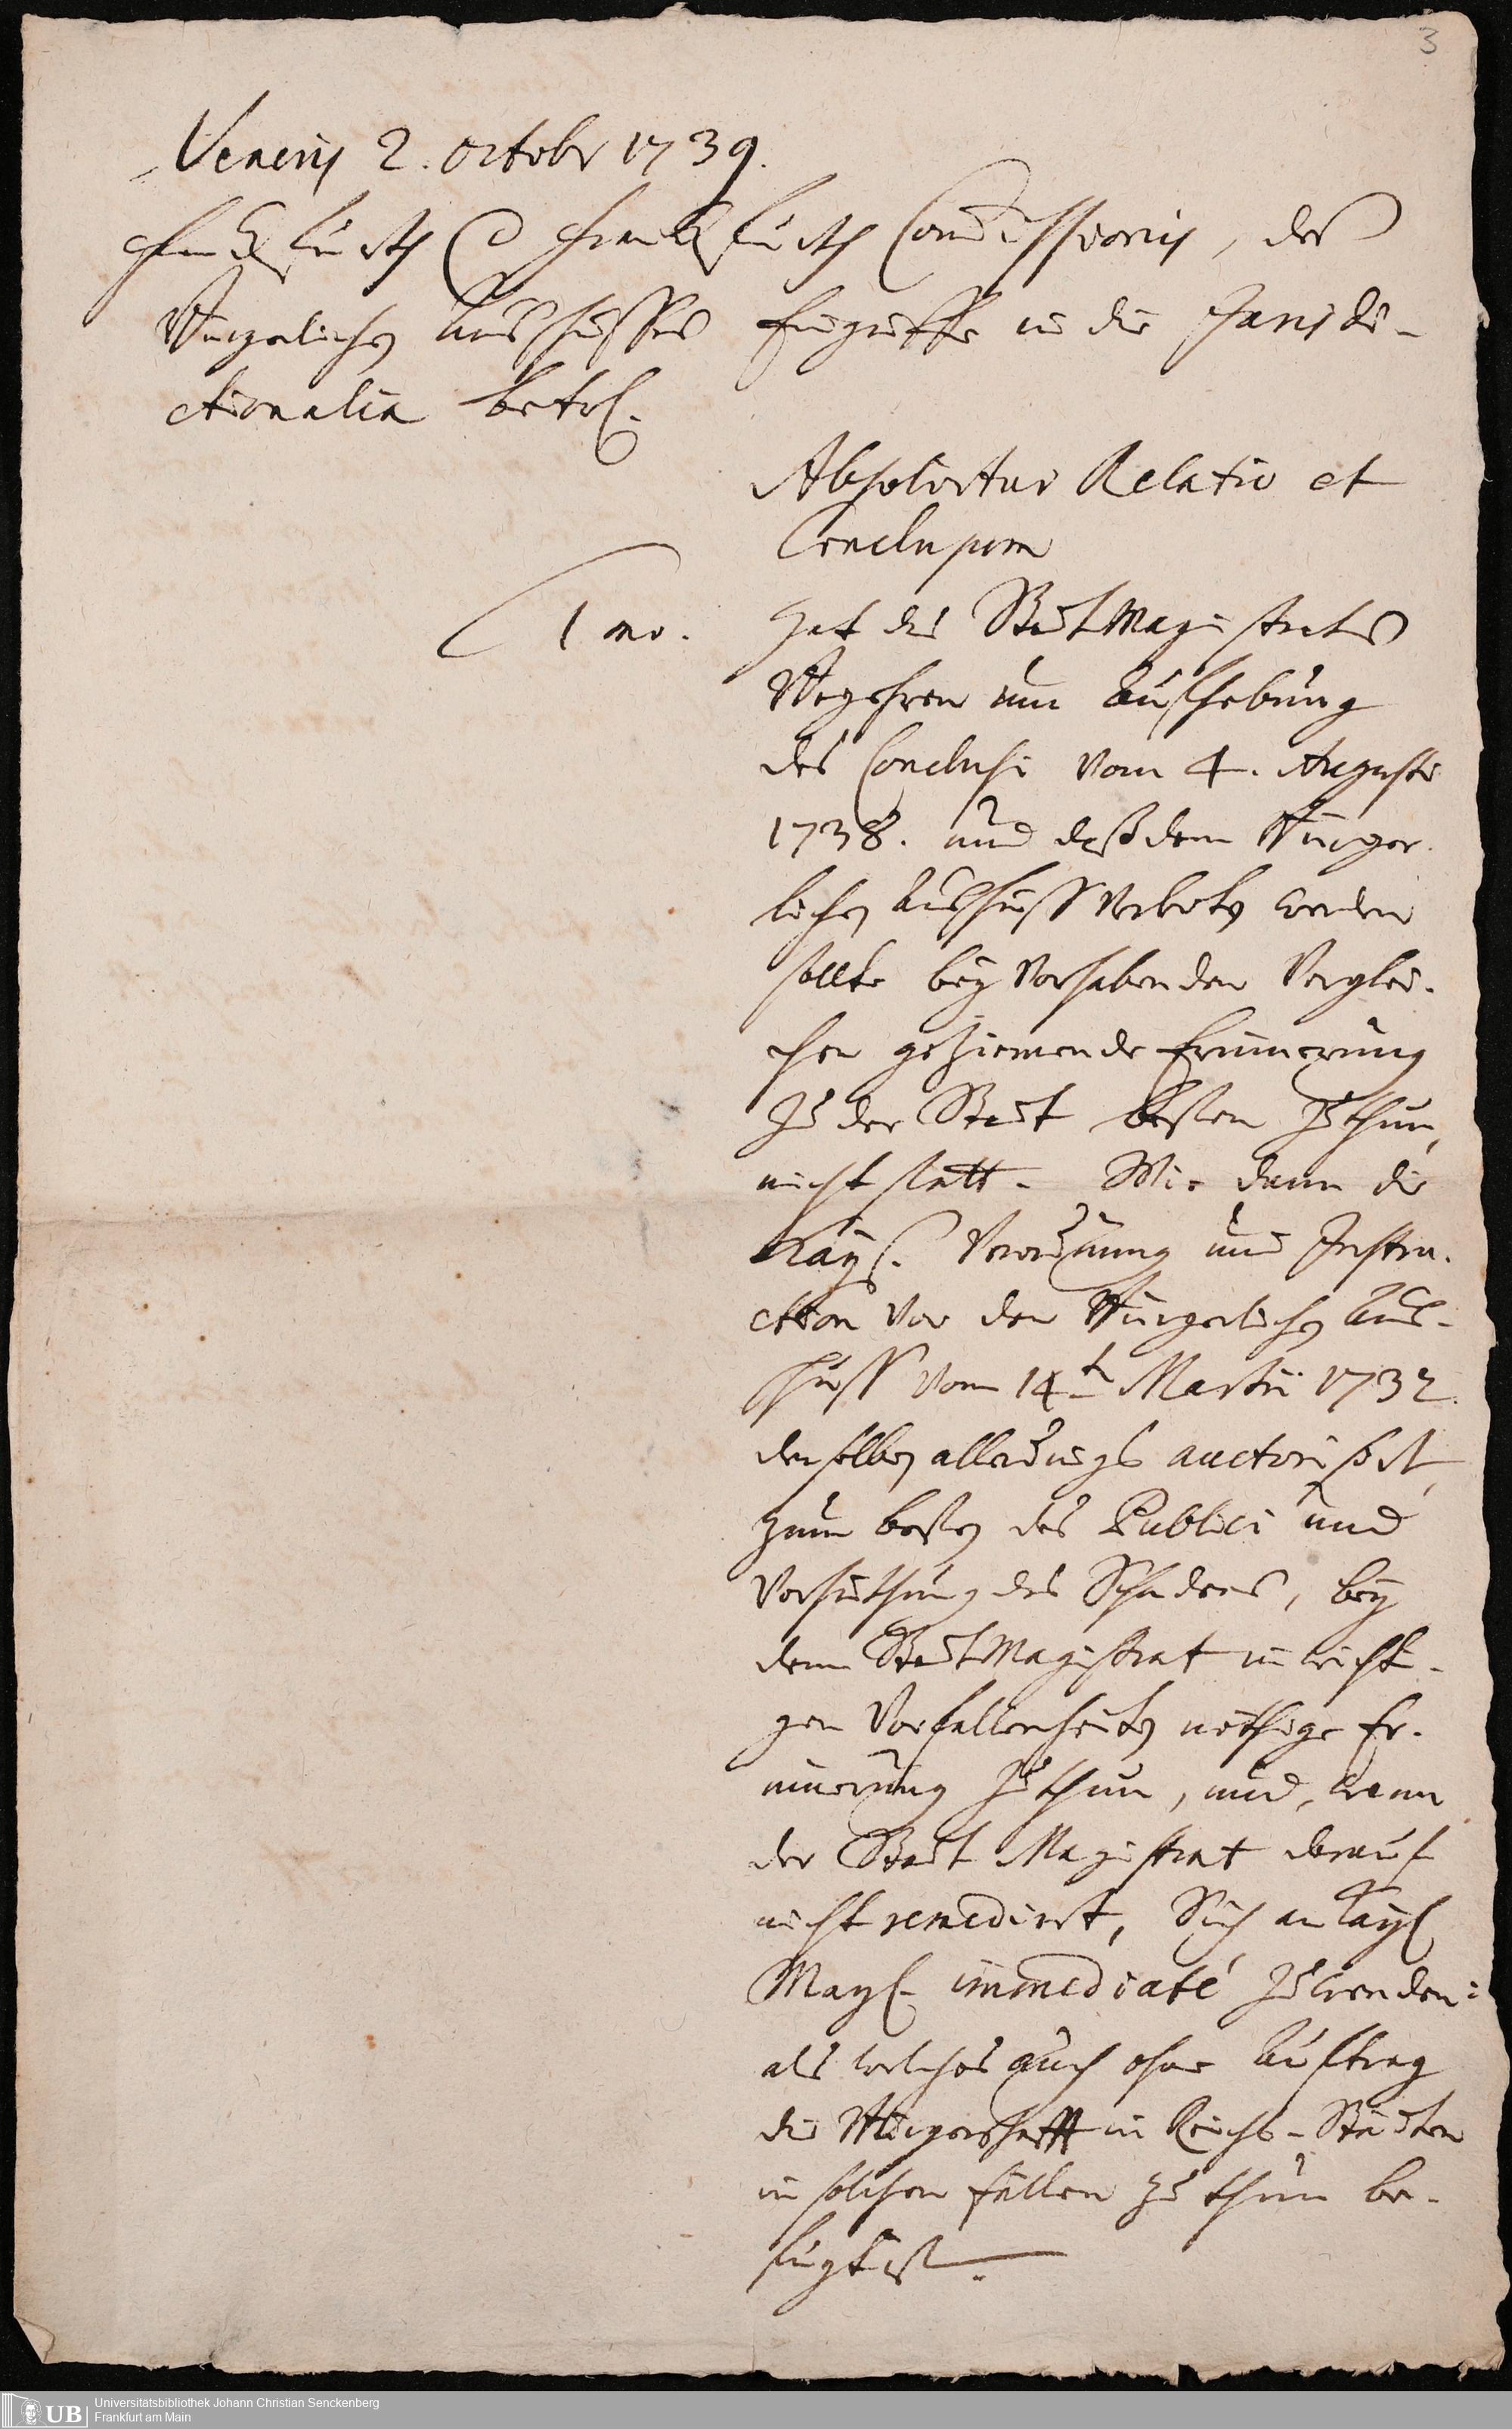 3
Veneris 2. Octobr 1739.
Franckfurth C Franckfurth Commissionis, des
Bürgerlichen Ausschusses Eingriffe in die Jurisdi-
ctionalia betrl.
Absolvitur Relatio et
Conclusum
1mo. Hat des Stadt Magistrats
Begehren um Aufhebung
des Conclusi vom 4. Augusti
1738. und daß dem Bürger-
lichen Ausschuss verboten werden
sollte bey vorhabenden Verglei-
chen geziemende Erinnerung
zu der Stadt besten zu thun,
nicht statt. Wie dann die
Kayl. Verordnung und Instru-
ction vor den Bürgerlichen Aus-
schuss vom 14t Martii 1732.
denselben allerdings auctorisirt,
zum besten des Publici und
Verhüthung des Schadens, bey
dem Stadt Magistrat in wichti-
gen Vorfallenheiten nöthige Er-
innerung zu thun, und, wenn
der Stadt Magistrat darauf
nicht remedirt, Sich an Kayl
Mayl. immediaté zu wenden:
als welches auch ohne Auftrag
die Bürgerschafft in Reichs-Städten
in solchen fällen zu thun be-
fugt ist.
UB Universitätsbibliothek Johann Christian Senckenberg
Frankfurt am Main